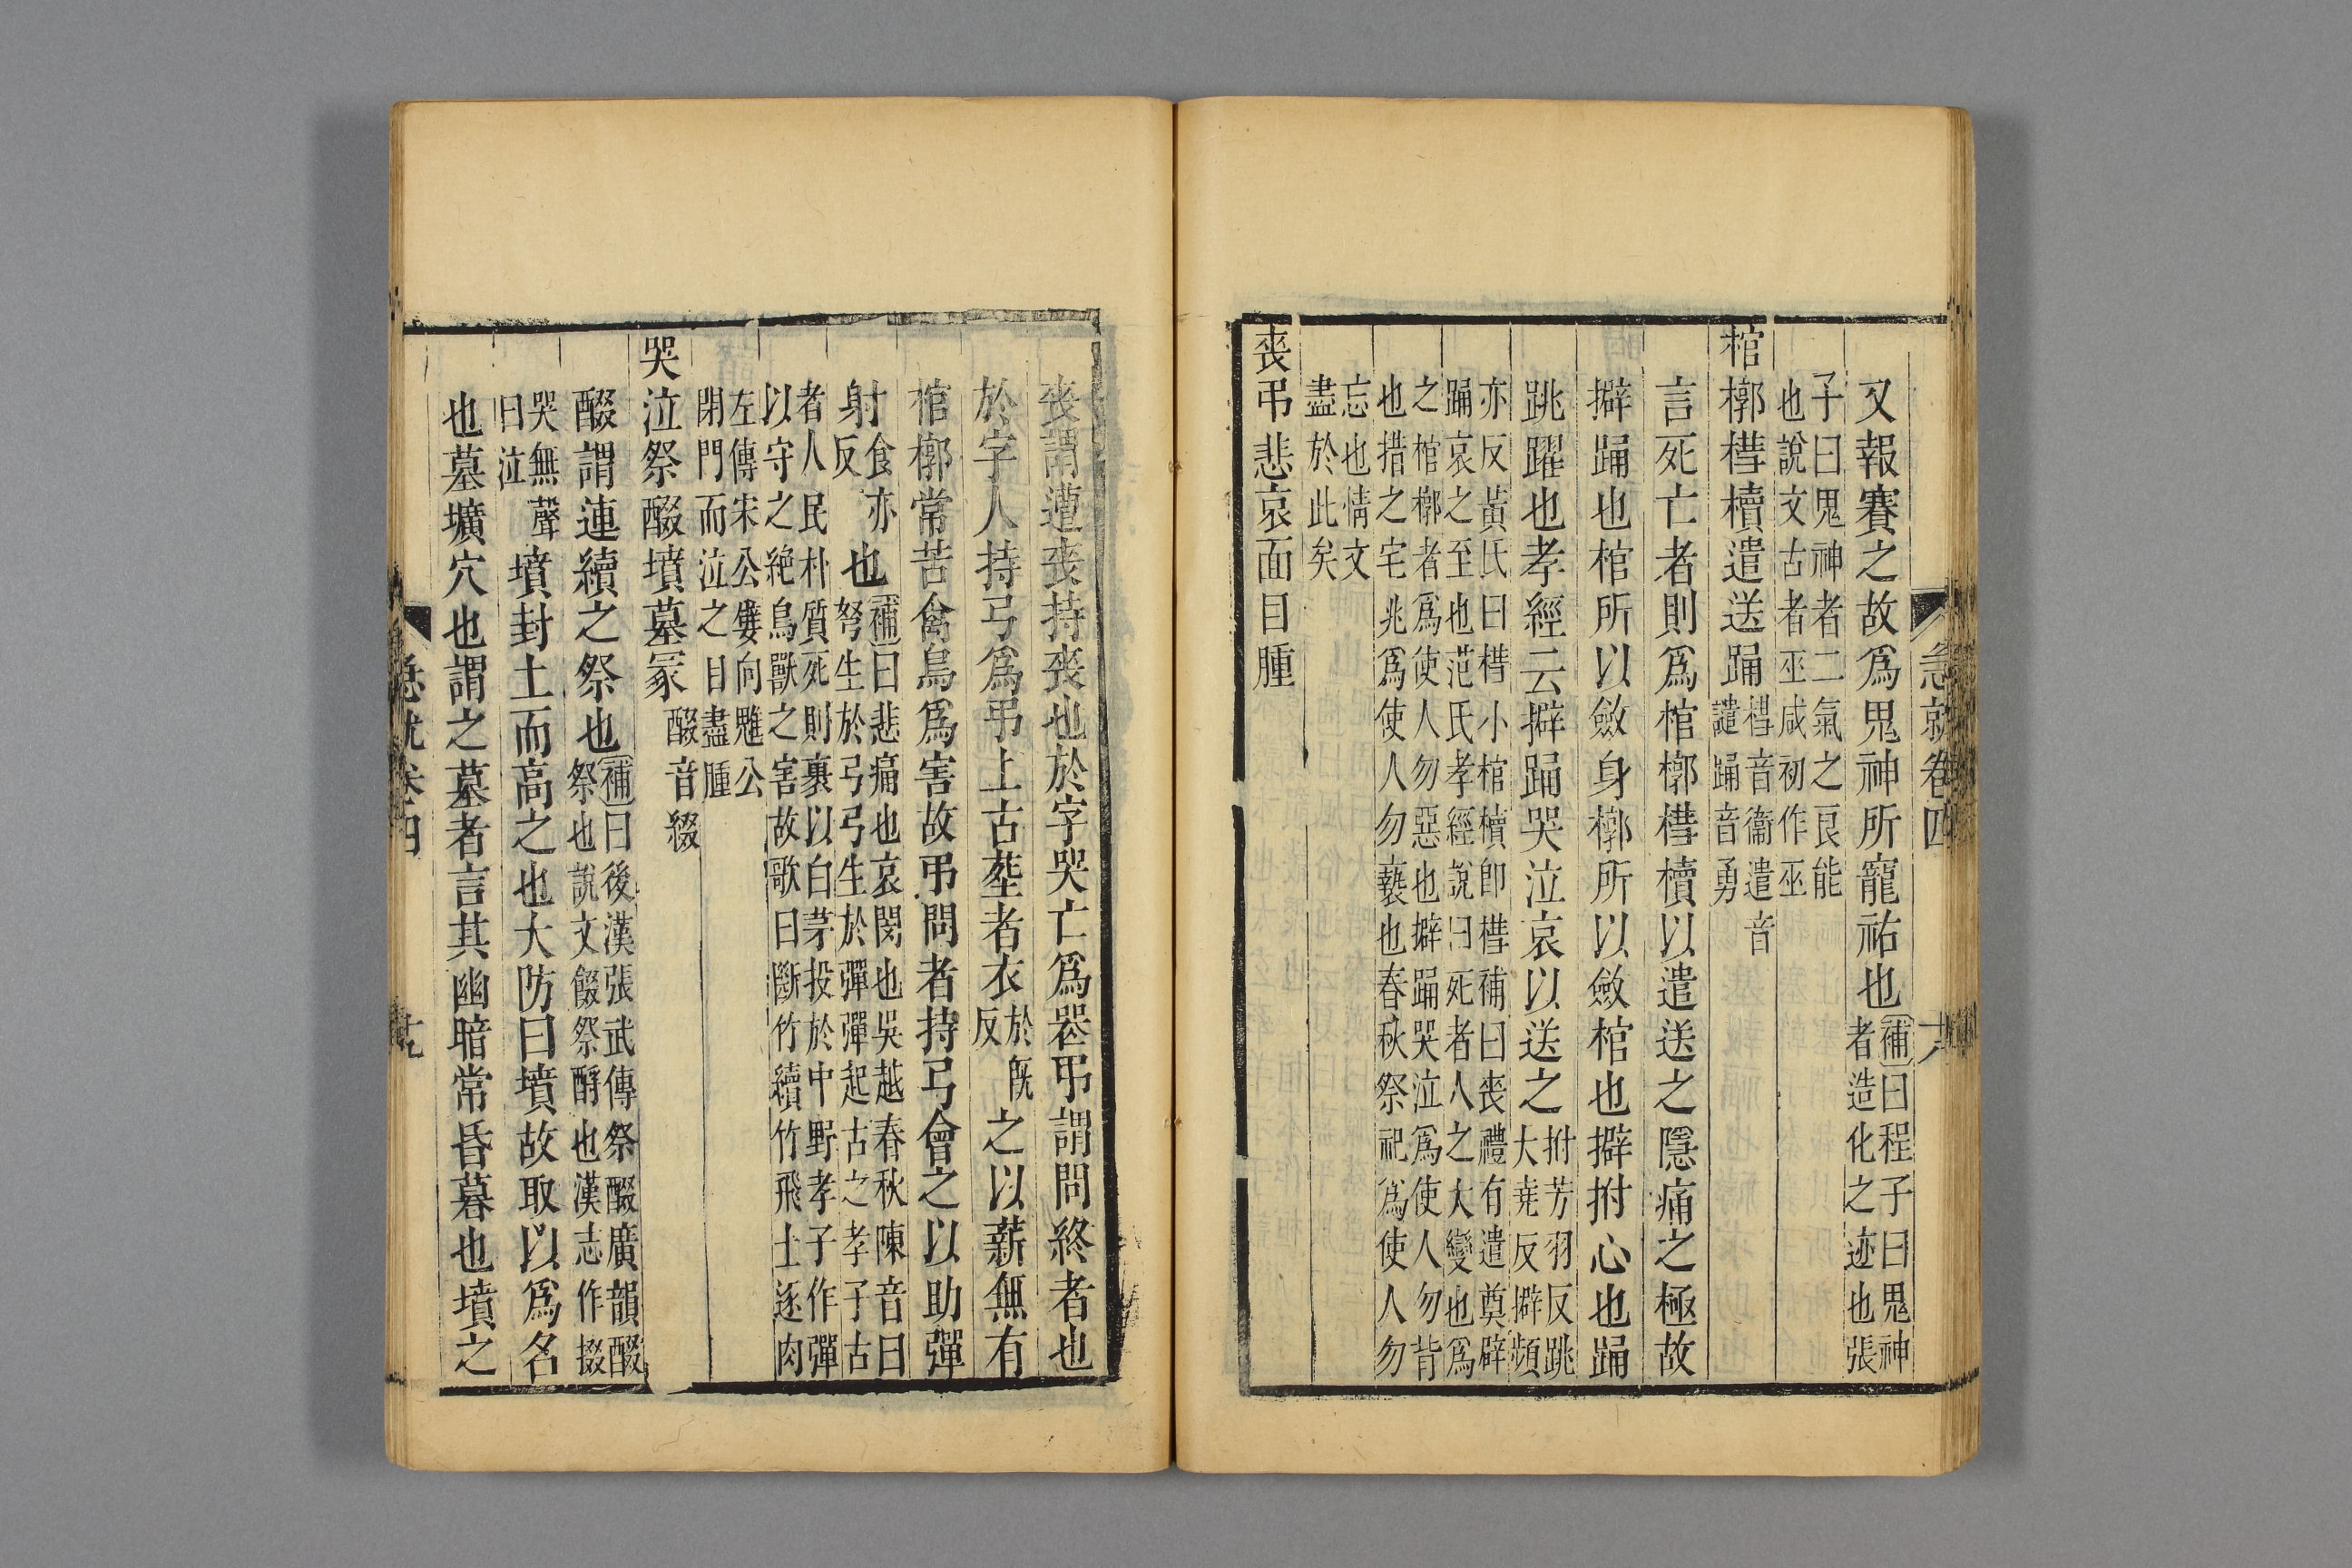 急就卷四
六
又報賽之故爲鬼神所寵祐也補曰程子曰鬼神
者造化之迹也張
子曰鬼神者二氣之良能
也說文古者巫咸初作巫
棺槨槥櫝遣送踊槥音衞遣音
譴踊音勇
言死亡者則爲棺槨槥櫝以遣送之隱痛之極故
擗踊也棺所以斂身槨所以斂棺也擗拊心也踊
跳躍也孝經云擗踊哭泣哀以送之拊芳羽反跳
大堯反擗頻
亦反黃氏曰槥小棺櫝卽槥補曰喪禮有遣奠辟
踊哀之至也范氏孝經說曰死者人之大變也爲
之棺槨者爲使人勿惡也擗踊哭泣爲使人勿背
也措之宅兆爲使人勿褻也春秋祭祀爲使人勿
忘也情文
盡於此矣
喪弔悲哀面目腫
喪謂遭喪持喪也於字哭亡爲喪弔謂問終者也
於字人持弓爲弔上古葬者衣於旣
反之以薪無有
棺槨常苦禽鳥爲害故弔問者持弓會之以助彈
射食亦
反也補曰悲痛也哀閔也吳越春秋陳音曰
弩生於弓弓生於彈彈起古之孝子古
者人民朴質死則裹以白茅投於中野孝子作彈
以守之絶鳥獸之害故歌曰斷竹續竹飛土逐肉
左傳宋公嬖向魋公
閉門而泣之目盡腫
哭泣祭醊墳墓冢醊音綴
醊謂連續之祭也補曰後漢張武傳祭醊廣韻醊
祭也說文餟祭酹也漢志作掇
哭無聲
曰泣墳封土而高之也大防曰墳故取以爲名
也墓壙穴也謂之墓者言其幽暗常昏暮也墳之
急就卷四
十九